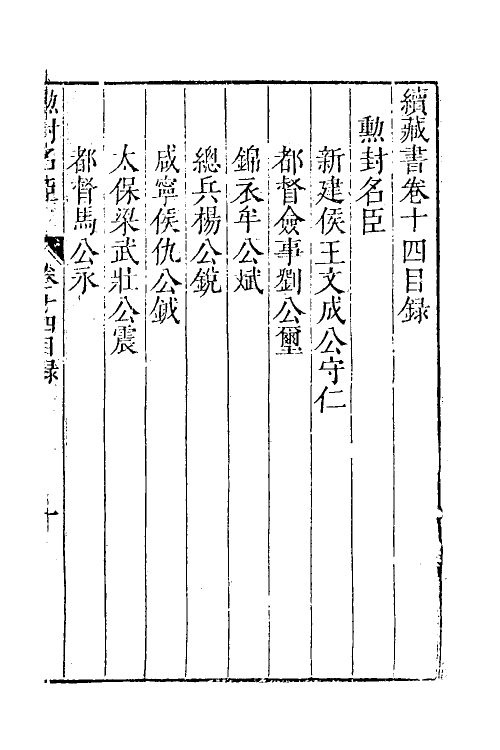 續藏書卷十四目録
勲封名臣
新建侯王文成公守仁
都督僉事劉公璽
錦衣牟公斌
總兵楊公銳
咸寧侯仇公鉞
太保梁武壯公震
都督馬公永
勲封名臣 卷十四目録 一